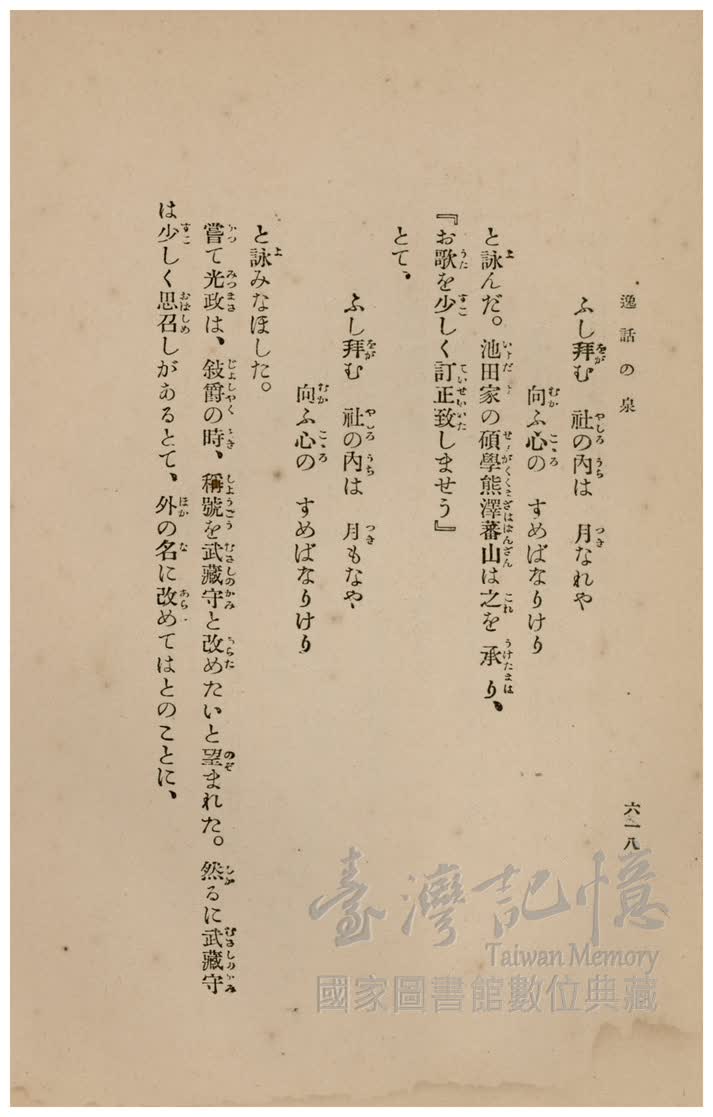 逸話の泉
六一八
ふし拜む　社の內は　月なれや
向ふ心の　すめばなりけり
と詠んだ。池田家の碩學熊澤蕃山は之を承り、
『お歌を少しく訂正致しませう』
とて、
ふし拜む　社の內は　月もなや、
向ふ心の　すめばなりけり
と詠みなほした。
嘗て光政は、敍爵の時、稱號を武藏守と改めたいと望まれた。然るに武藏守
は少しく思召しがあるとて、外の名に改めてはとのことに、
臺灣記憶
Taiwan Memory
國家圖書館數位典藏